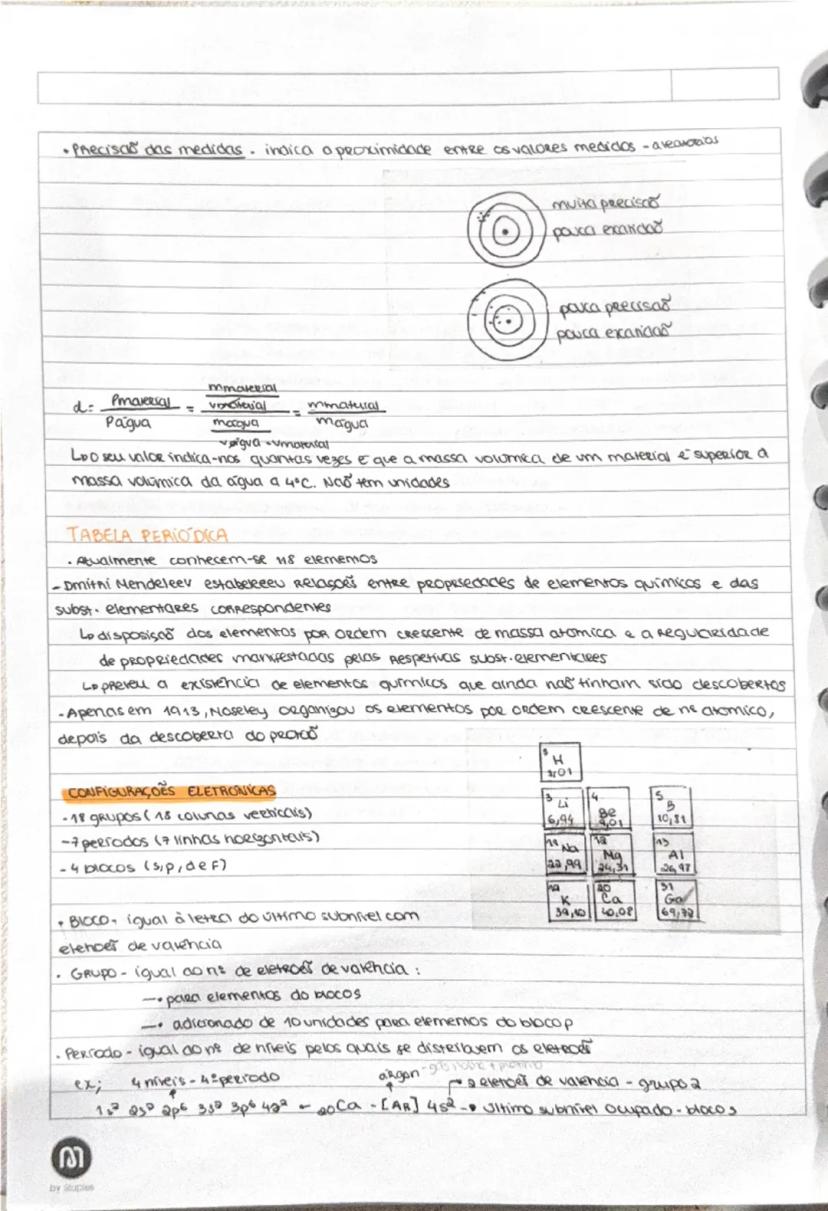 • Precisão das medidas. indica a proximidade entre os valores medidos - aleatórios
muita precisão
pouca exatidão
pouca precisão
pouca exatidão
d = ρmaterial / ρágua = (mmaterial / vmaterial) / (mágua / vágua = vmaterial) = mmaterial / mágua
↳ O seu valor indica-nos quantas vezes é que a massa volúmica de um material é superior à
massa volúmica da água a 4°C. Não tem unidades
TABELA PERIÓDICA
• Atualmente conhecem-se 118 elementos
- Dmitri Mendeleev estabeleceu relações entre propriedades de elementos químicos e das
subst. elementares correspondentes
↳ disposição dos elementos por ordem crescente de massa atómica e a regularidade
de propriedades manifestadas pelas respetivas subst. elementares
↳ previu a existência de elementos químicos que ainda não tinham sido descobertos
- Apenas em 1913, Moseley organizou os elementos por ordem crescente de nº atómico,
depois da descoberta do protão
CONFIGURAÇÕES ELETRÓNICAS
- 18 grupos (18 colunas verticais)
- 7 períodos (7 linhas horizontais)
- 4 blocos (s, p, d e F)
1 H 1,01
3 Li 6,94 4 Be 9,01 5 B 10,81
11 Na 22,99 12 Mg 24,31 13 Al 26,97
19 K 39,10 20 Ca 40,08 31 Ga 69,72
• Bloco - igual à letra do último subnível com
eletrões de valência
• Grupo - igual ao nº de eletrões de valência:
→ para elementos do bloco s
→ adicionado de 10 unidades para elementos do bloco p
• Período - igual ao nº de níveis pelos quais se distribuem os eletrões
ex; 4 níveis - 4º período árgon - gás nobre + próximo 2 eletrões de valência - grupo 2
1s² 2s² 2p⁶ 3s² 3p⁶ 4s² ← 20Ca - [AR] 4s² → último subnível ocupado - bloco s
M
by Staples